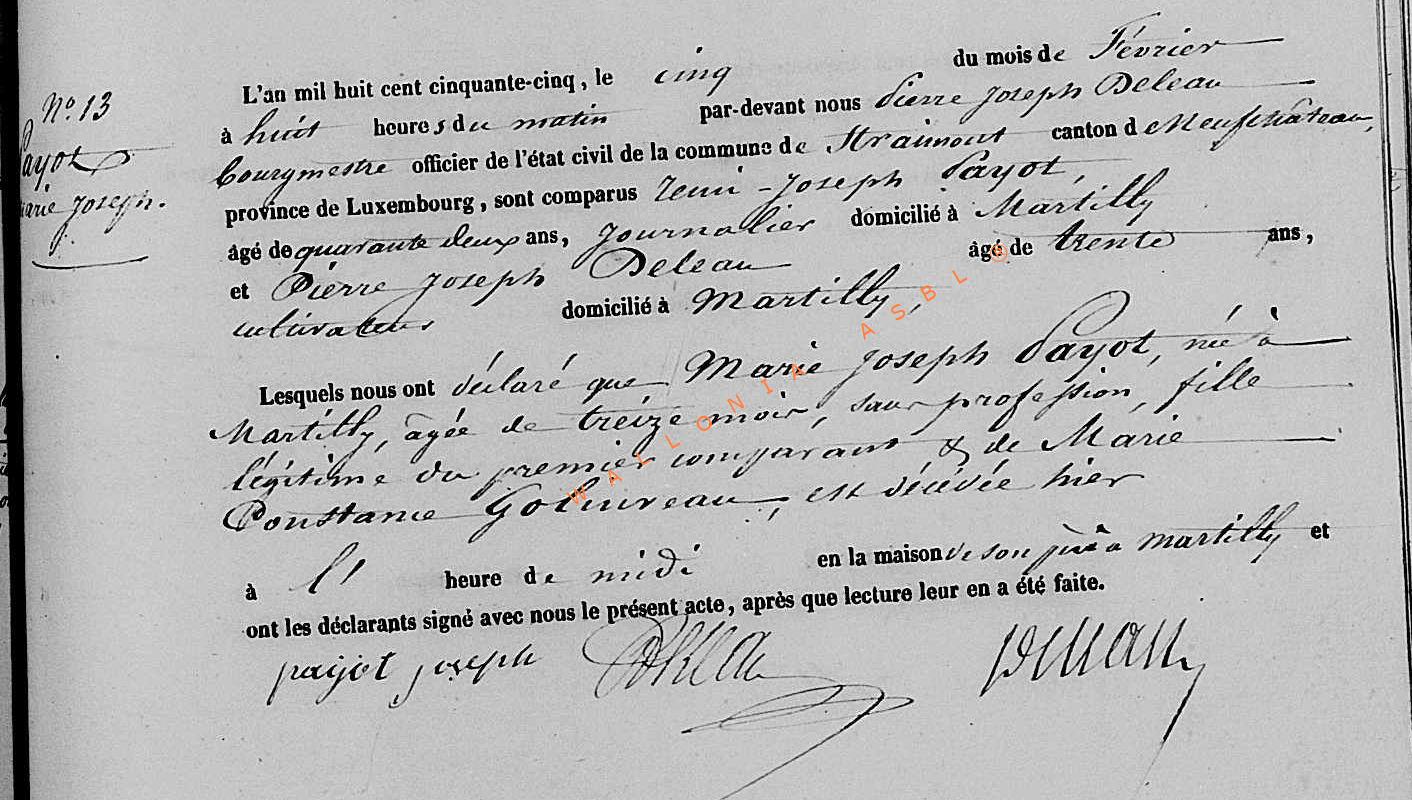 N.o 13
Payot
Marie Joseph.
L'an mil huit cent cinquante-cinq, le cinq du mois de Février
à huit heures du matin par-devant nous Pierre Joseph Deleau
bourgmestre officier de l'état civil de la commune de Straimont canton d e Neufchâteau,
province de Luxembourg, sont comparus Remi-Joseph Payot,
âgé de quarante deux ans, journalier domicilié à Martilly
et Pierre Joseph Deleau âgé de trente ans,
cultivateur domicilié à Martilly,
Lesquels nous ont déclaré que Marie Joseph Payot, née à
Martilly, âgée de treize mois, sans profession, fille
légitime du premier comparant & de Marie
Constance, est décédée hier
à l' heure de midi en la maison de son père à Martilly et
ont les déclarants signé avec nous le présent acte, après que lecture leur en a été faite.
payot joseph Deleau Deleau
WALLONIA ASBL ©